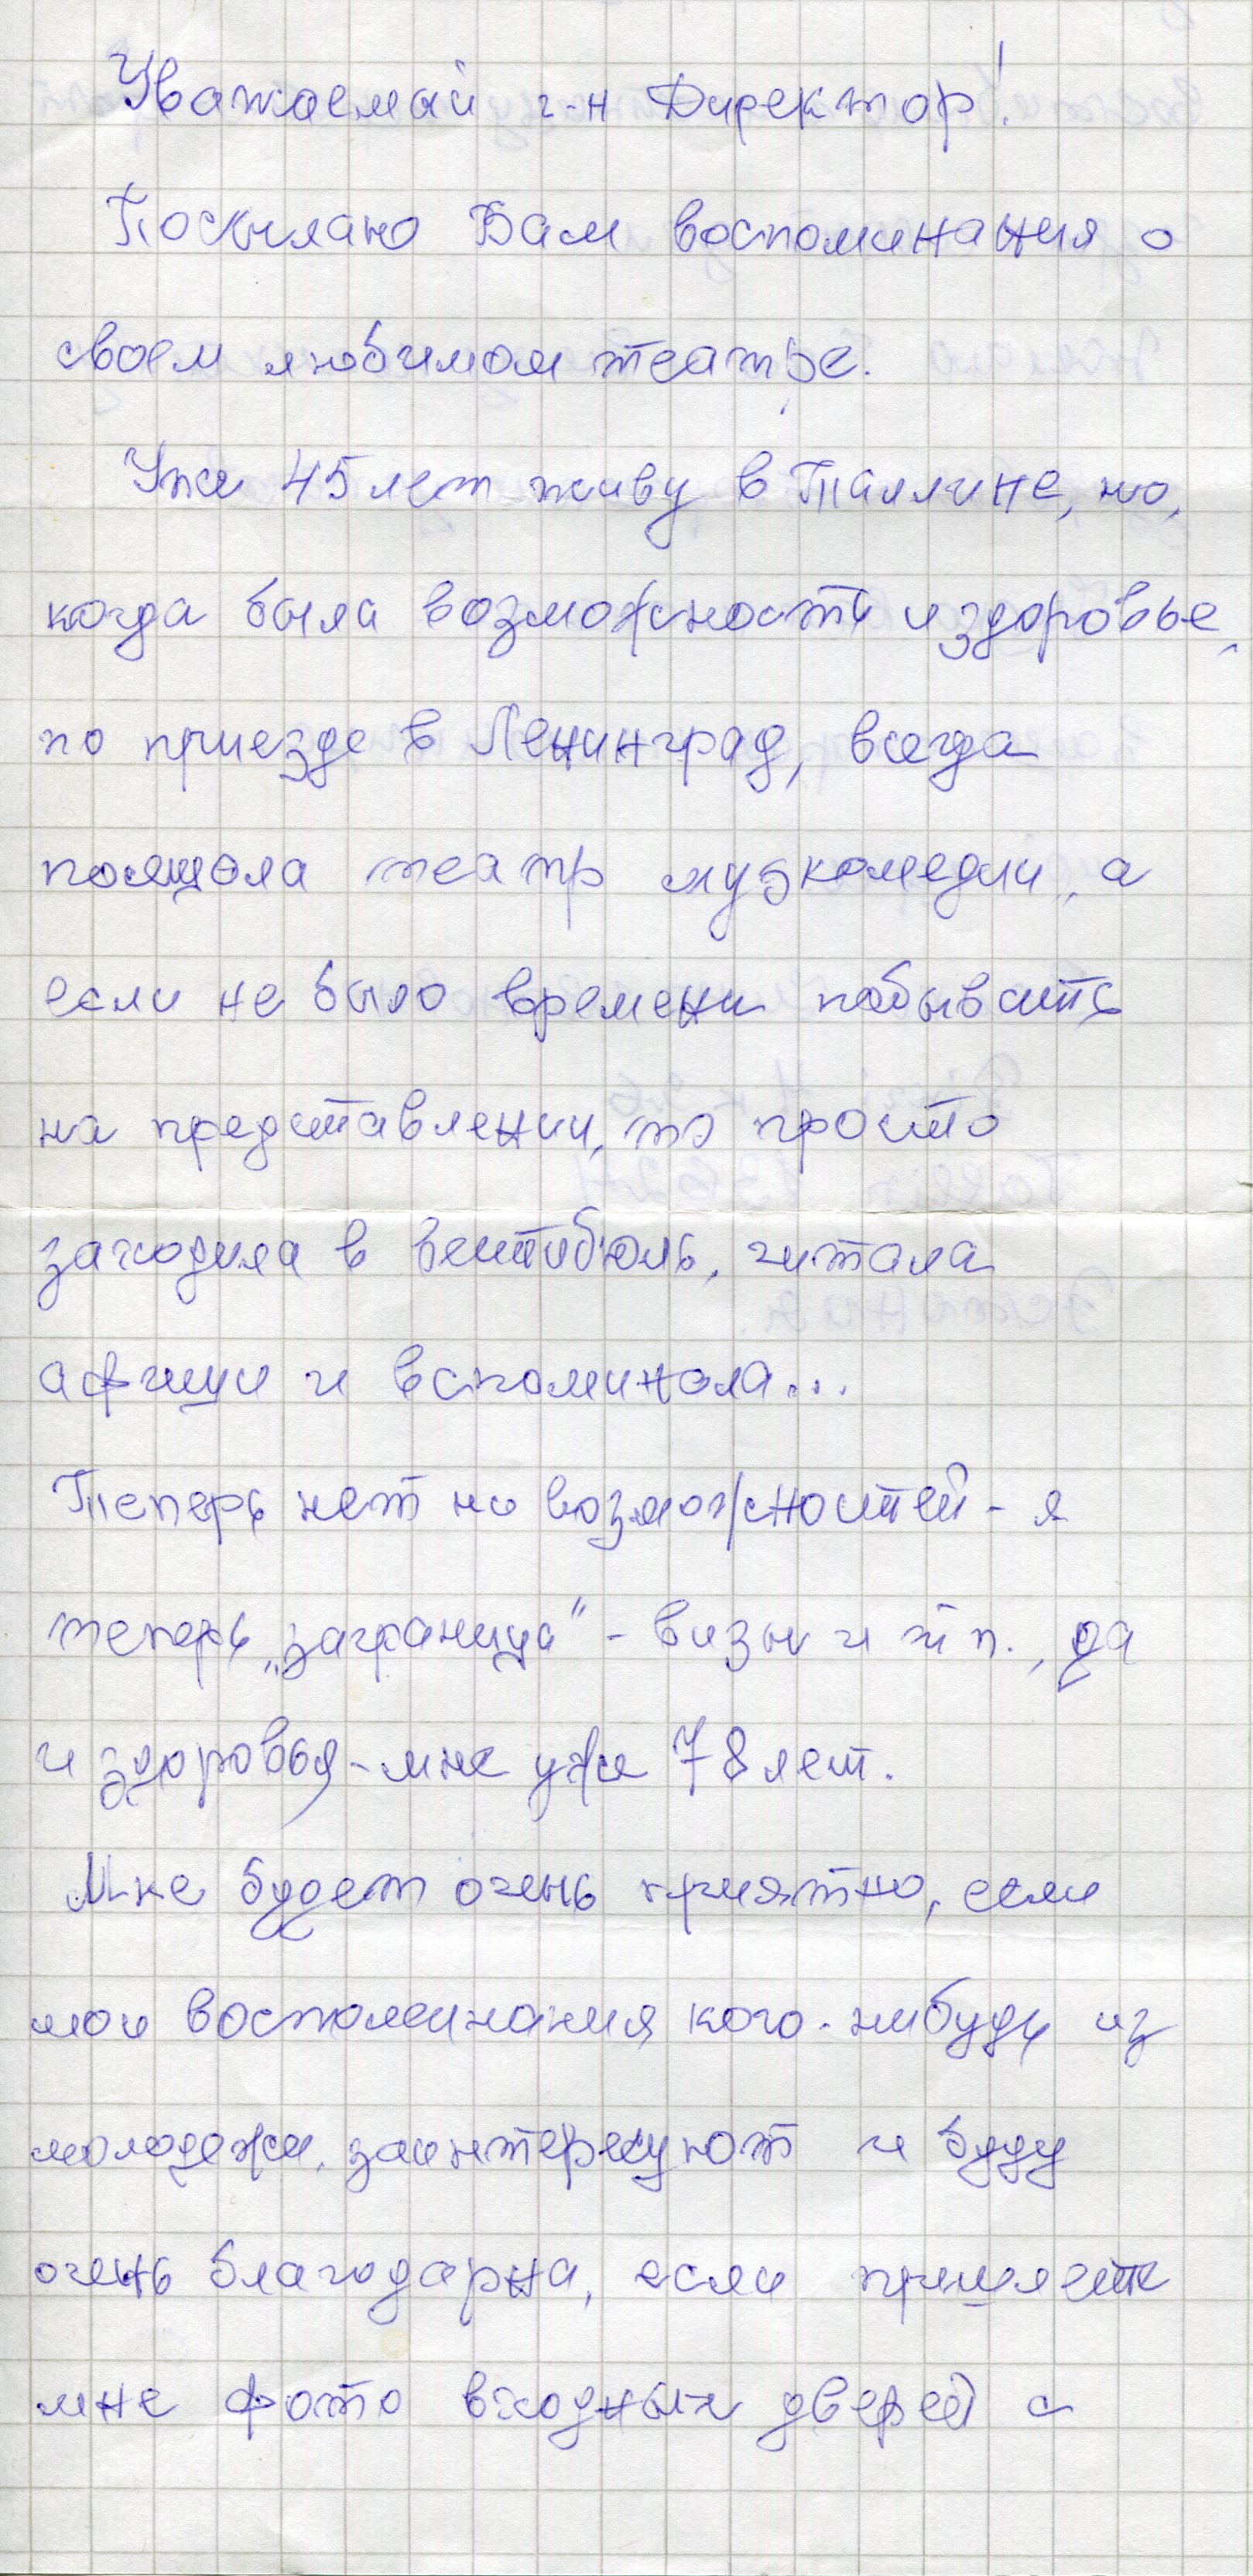 Уважаемый г-н Директор!
Посылаю Вам воспоминания о
своем любимом театре.
Уже 45 лет живу в Таллине, но,
когда была возможность и здоровье,
по приезде в Ленинград, всегда
посещала театр музкомедии, а
если не было времени побывать
на представлении, то просто
заходила в вестибюль, читала
афиши и вспоминала...
Теперь нет ни возможностей - я
теперь „заграница" - визы и т.п., да
и здоровья - мне уже 78 лет.
Мне будет очень приятно, если
мои воспоминания кого-нибудь из
молодежи заинтересуют и буду
очень благодарна, если пришлете
мне фото входных дверей с